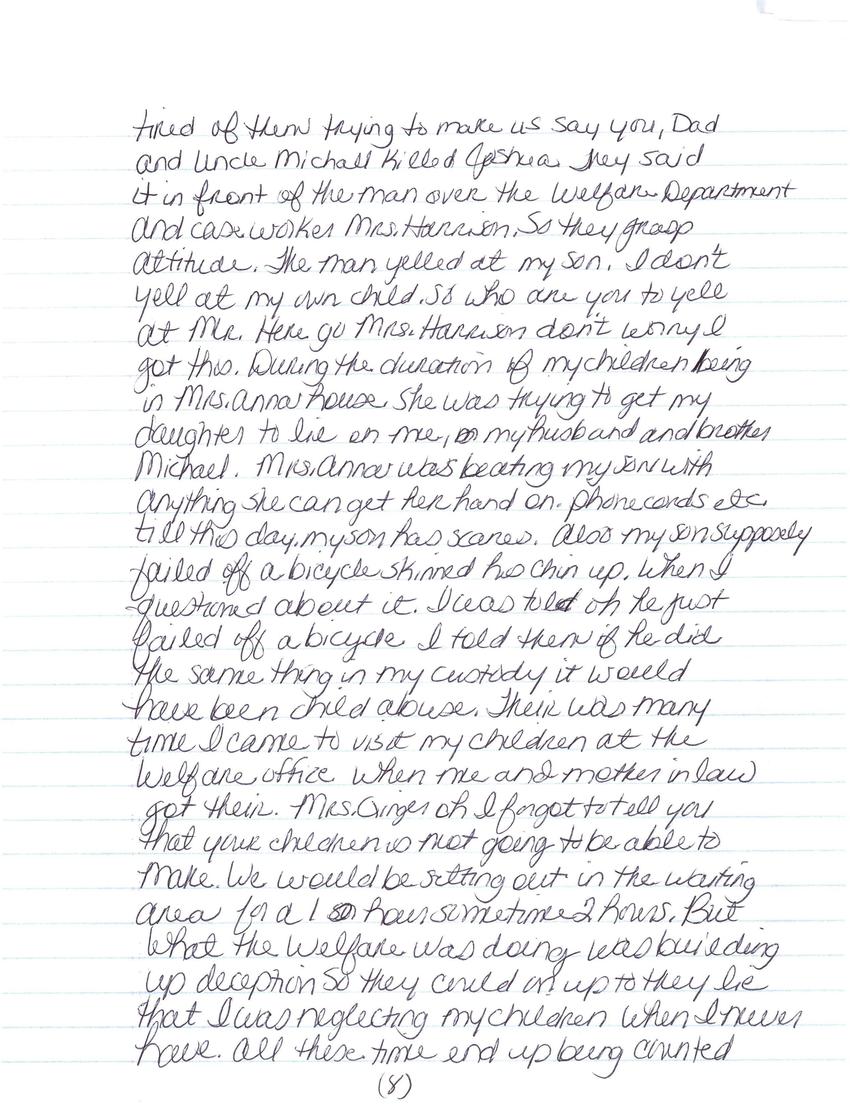 tired of them trying to make us say you, Dad
and Uncle Michall killed Joshua. They said
it in front of the man over the Welfare Department
and case worker Mrs. Harrison. So they grasp
attitude. The man yelled at my son. I don't
yell at my own child. So who are you to yell
at Me. Here go Mrs. Harrison don't worry I
got this. During the duration of my children being
in Mrs. Anna house. She was trying to get my
daughter to lie on me, my husband and brother
Michael. Mrs. Anna was beating my son with
anything she can get her hand on. phone cords etc.
till this day, my son has scares. Also my son supposely
failed off a bicycle skinned his chin up. When I
questioned about it. I was told oh he just
failed off a bicycle I told them if he did
the same thing in my custody it would
have been child abuse. Their was many
time I came to visit my children at the
Welfare office. When me and mother in law
got their. Mrs. Ginger oh I forgot to tell you
that your children is not going to be able to
make. We would be sitting out in the waiting
area for a 1 hour sometime 2 hours. But
what the Welfare was doing was building
up deception So they could own up to they lie
that I was neglecting my children when I never
have. All these time end up being counted
(8)